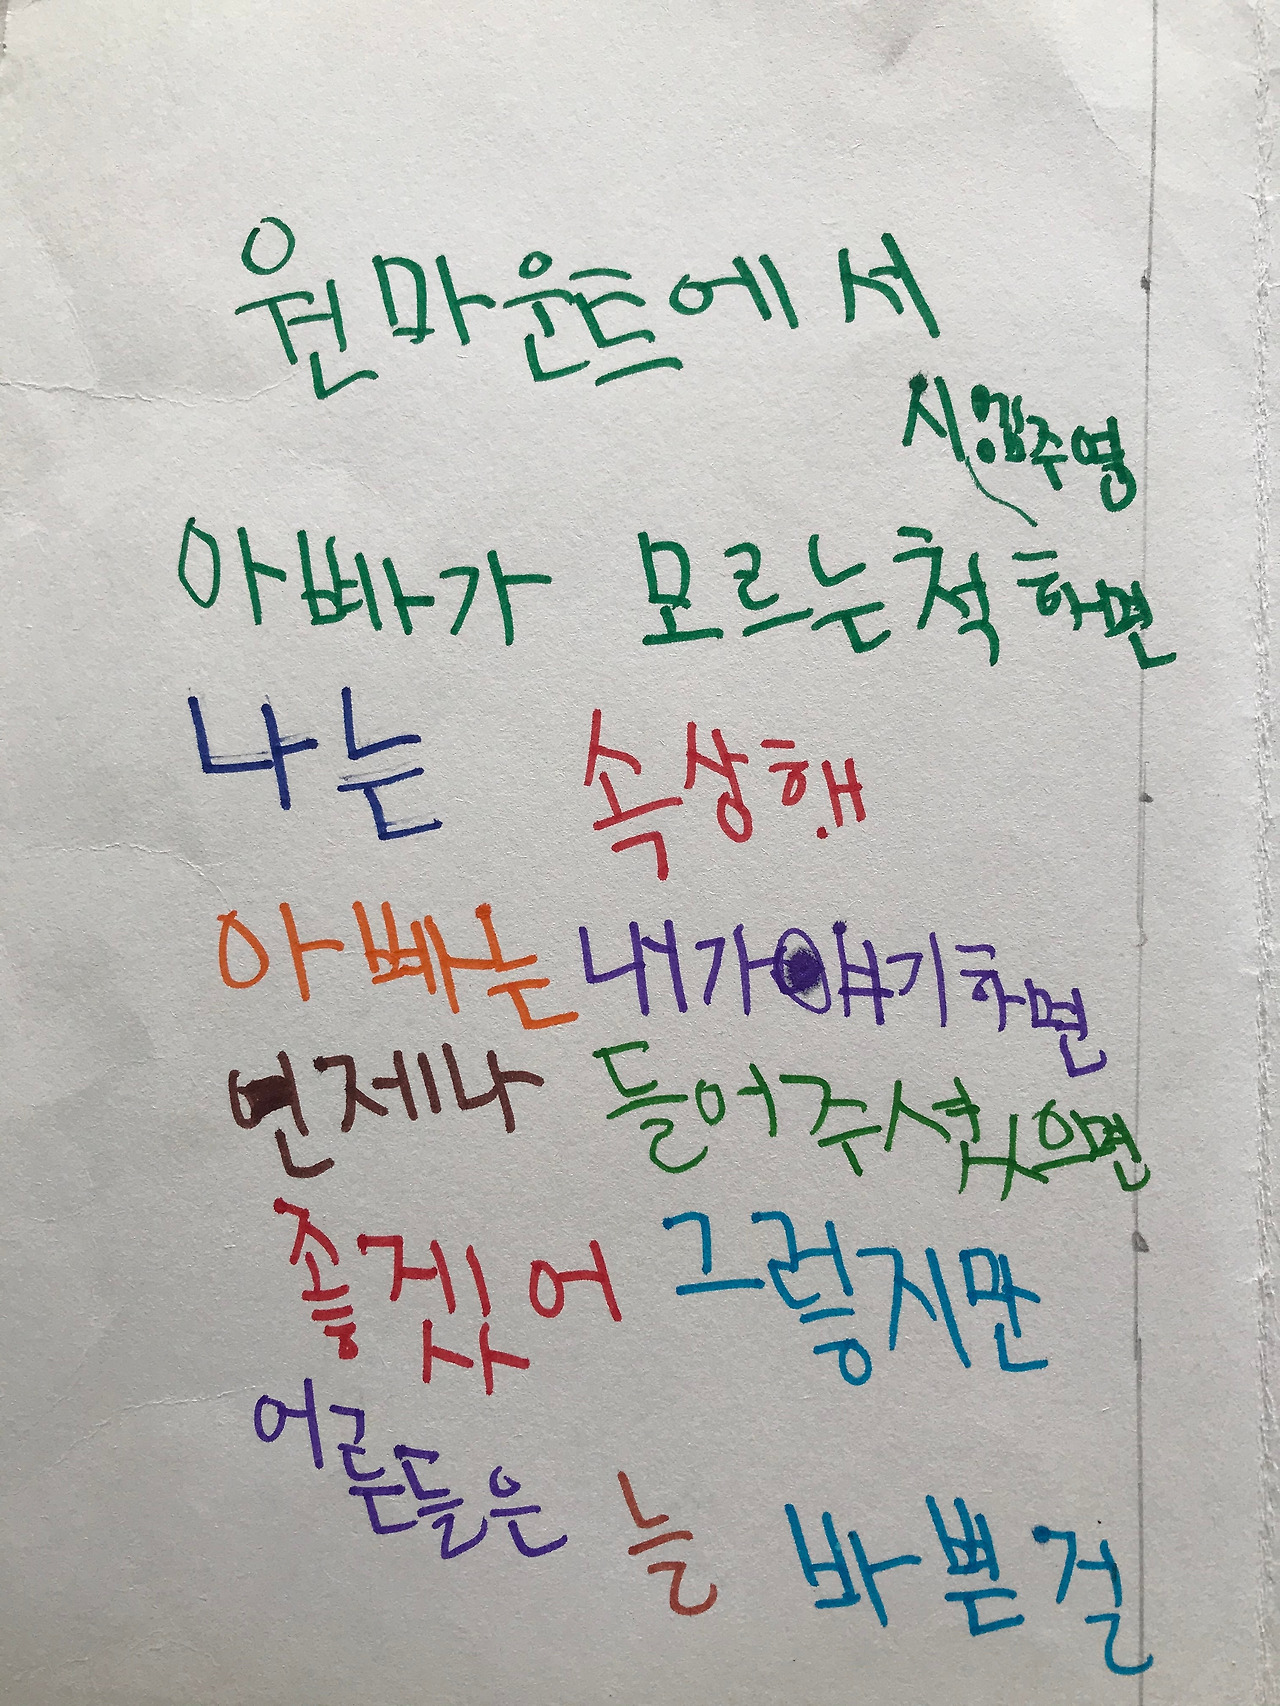 원마운트에서
시엄주영
아빠가 모르는척하면
나는 속상해
아빠는 내가 얘기하면
언제나 들어주셨으면
좋겠어 그렇지만
어른들은 늘 바쁜걸